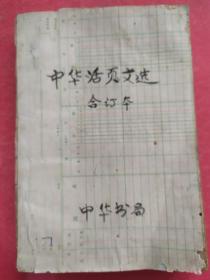 中华活页文选
合订本
中华书局